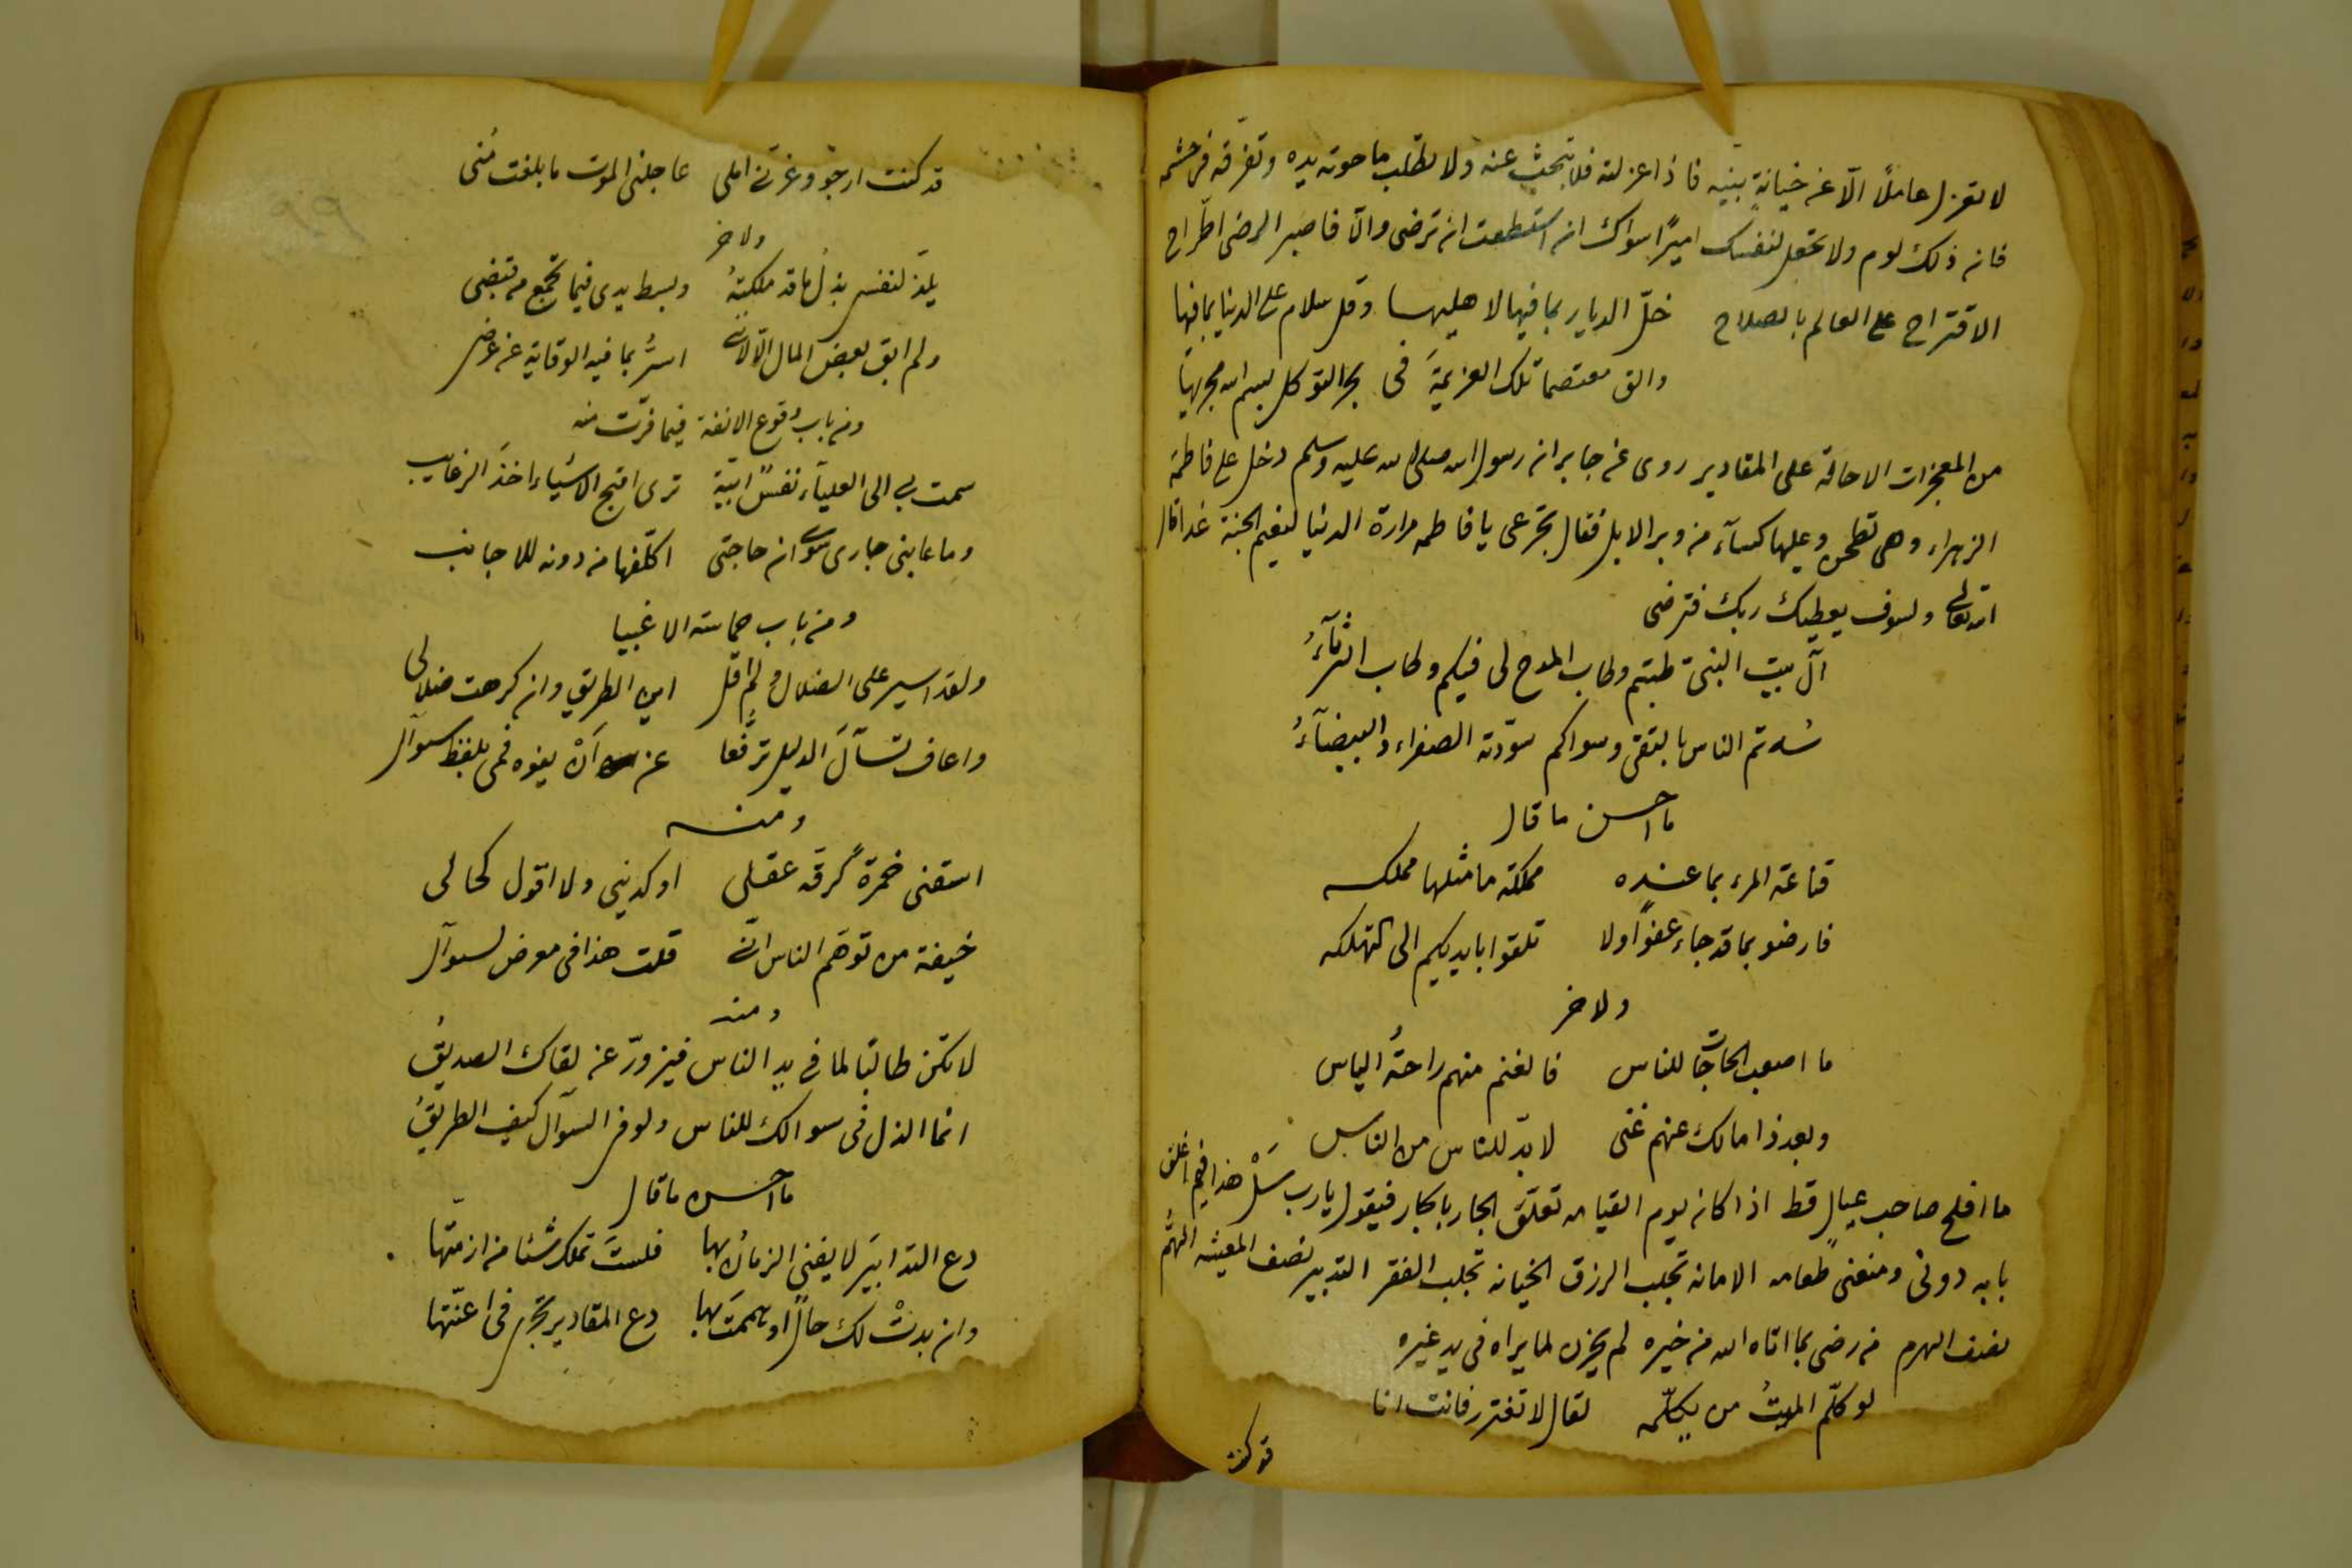 لا تعزل عاملًا الّا عن خيانةٍ بينه فاذا عزلته فلا تبحث عنه ولا تطلب ما حوته يده وتفرقه في حشمه
فان ذلك لوم ولا تجعل لنفسك اميرًا سواك ان استطعت ان ترضى والّا فاصبر الرضى اطّراح
الاقتراح على العالم بالصلاح خلّ الديار بما فيها لاهليها وقل سلام على الدنيا بما فيها
والق معتصما تلك العزيمةَ في بحر التوكل بسم الله مجريها
من المعجزات الاحالة على المقادير روى عن جابر ان رسول الله صلى الله عليه وسلم دخل على فاطمة
الزهراء وهى تطحن وعليها كسآء من وبر الابل فقال تجرعى يا فاطمه مرارة الدنيا لنعيم الجنة غدا قال
الله تعالى ولسوف يعطيك ربك فترضى
آل بيت النبى طبتم وطاب المدح لى فيكم وطاب الرثآءُ
سُدتم الناس بالتقى وسواكم سوّدته الصفراء والبيضآءُ
ما احسن ما قال
قناعة المرء بما عنده مملكة ما مثلها مملكه
فارضو بما قد جاء عفوًا ولا تلقوا بايديكم الى التهلكه
ولاخر
ما اصعب الحاجات للناس فالغنم منهم راحةُ الياس
وبعد ذا مالك عنهم غنى لا بدّ للناس من الناس
ما افلح صاحب عيالٍ قط اذا كان يوم القيامه تعلّق الجار بالجار فيقول يا رب سَلْ هذا فيم اغلق
بابه دونى ومنعنى طعامه الامانه تجلب الرزق الخيانه تجلب الفقر التدبير نصف المعيشه الهمّ
نصف الهرم من رضى بما اتاه الله من خيره لم يحزن لما يراه فى يد غيره
لو كلّم الميتُ من يكلّمه لقال لا تغترر فانت انا
قد كنت
قد كنت ارجو وغرّنى املى عاجلنى الموت ما بلغت مُنى
ولاخر
يلذّ لنفسى بذلُ ما قد ملكتهُ وبسط يدى فيما تجمع من قبضى
ولم ابق بعض المال الّا لاننى اسرُّ بما فيه الوقاية عن عرضى
ومن باب وقوع الانفة فيما فرّت منه
سمت بى الى العليآء نفسٌ ابيّة ترى اقبح الاشياء اخذَ الرغايب
وما عابنى جارى سوى ان حاجتى اكلّفها من دونه للاجانب
ومن باب حماسة الاغبيا
ولقد اسير على الضلال ولم اقل اين الطريق وان كرهت ضلالى
واعاف تسآلَ الدليل ترفّعا عن اَنْ يفوه فمى بلفظ سوآل
ومنه
اسقنى خمرة كرقّه عقلى او كدينى ولا اقول كحالى
خيفة من توهّم الناس انّى قلت هذا فى معرض لسوآل
ومنه
لا تكن طالبًا لما فى يد الناس فيزورّ عن لقاك الصديقُ
انما الذل فى سوالك للناس ولو فى السوآل كيف الطريقُ
ما احسن ما قال
دع التدابيَر لا يفنى الزمانُ بها فلستَ تملك شئا من ازمّتها
وان بدتْ لك حالٌ او هممتَ بها دع المقادير تجرى فى اعنّتها